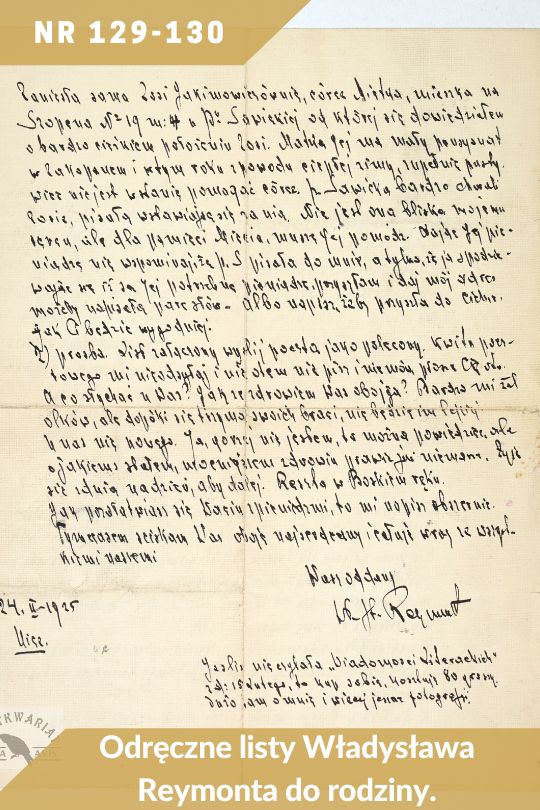 NR 129-130
Zaniosła sama Zosi Jakimowiczównie, córce Mietka, mieszka na
Szopena Nº 19 m: 4 u Pⁱ Sawickiej od której się dowiedziałem
o bardzo ciężkiem położeniu Zosi. Matka Jej ma mały pensyonat
w Zakopanem i w tym roku z powodu ciepłej zimy, zupełnie pusty,
więc nie jest w stanie pomagać córce. p. Sawicka bardzo chwali
Zosię, pisała wstawiając się za nią. Nie jest ona bliska mojemu
sercu, ale dla pamięci Miecia, muszę Jej pomódz. Dając Jej pie-
niądze nie wspominaj, że p. S pisała do mnie, a tylko, że ja spodzie-
wając się iż są Jej potrzebne pieniądze, przysyłam i daj mój adres
możeby napisała parę słów. Albo napisz, żeby przyszła do Ciebie,
jak Ci będzie wygodniej.
2) prośba. List załączony wyślij pocztą jako polecony. Kwitu pocz-
towego mi nieodsyłaj i nie
A co słychać u Was? Jak ze zdrowiem Was obojga? Bardzo mi żal
Olków, ale dopóki się trzyma swoich braci, nie będzie im lepiej
U nas nic nowego. Ja, gorzej nie jestem, to można powiedzieć, ale
o jakiemś stałem, utwierdzonem zdrowiu prawie już niemarzę. Żyje
się z dnia nadzieją, aby dalej. Reszta w Boskiem ręku.
Jak pozałatwiasz się Waciu z pieniędzmi, to mi napisz obszernie.
Tymczasem ściskam Was oboje najserdeczniej i całuję wraz ze wszyst-
kiemi naszemi
Wasz oddany
Wł. St. Reymont
24. II-1925
Nice.
Jeśliś nie czytała „Wiadomości Literackich"
z d: 15 Lutego, to kup sobie, kosztuje 80 groszy.
Dużo tam o mnie i więcej jeszcze fotografji.
Odręczne listy Władysława
Reymonta do rodziny.